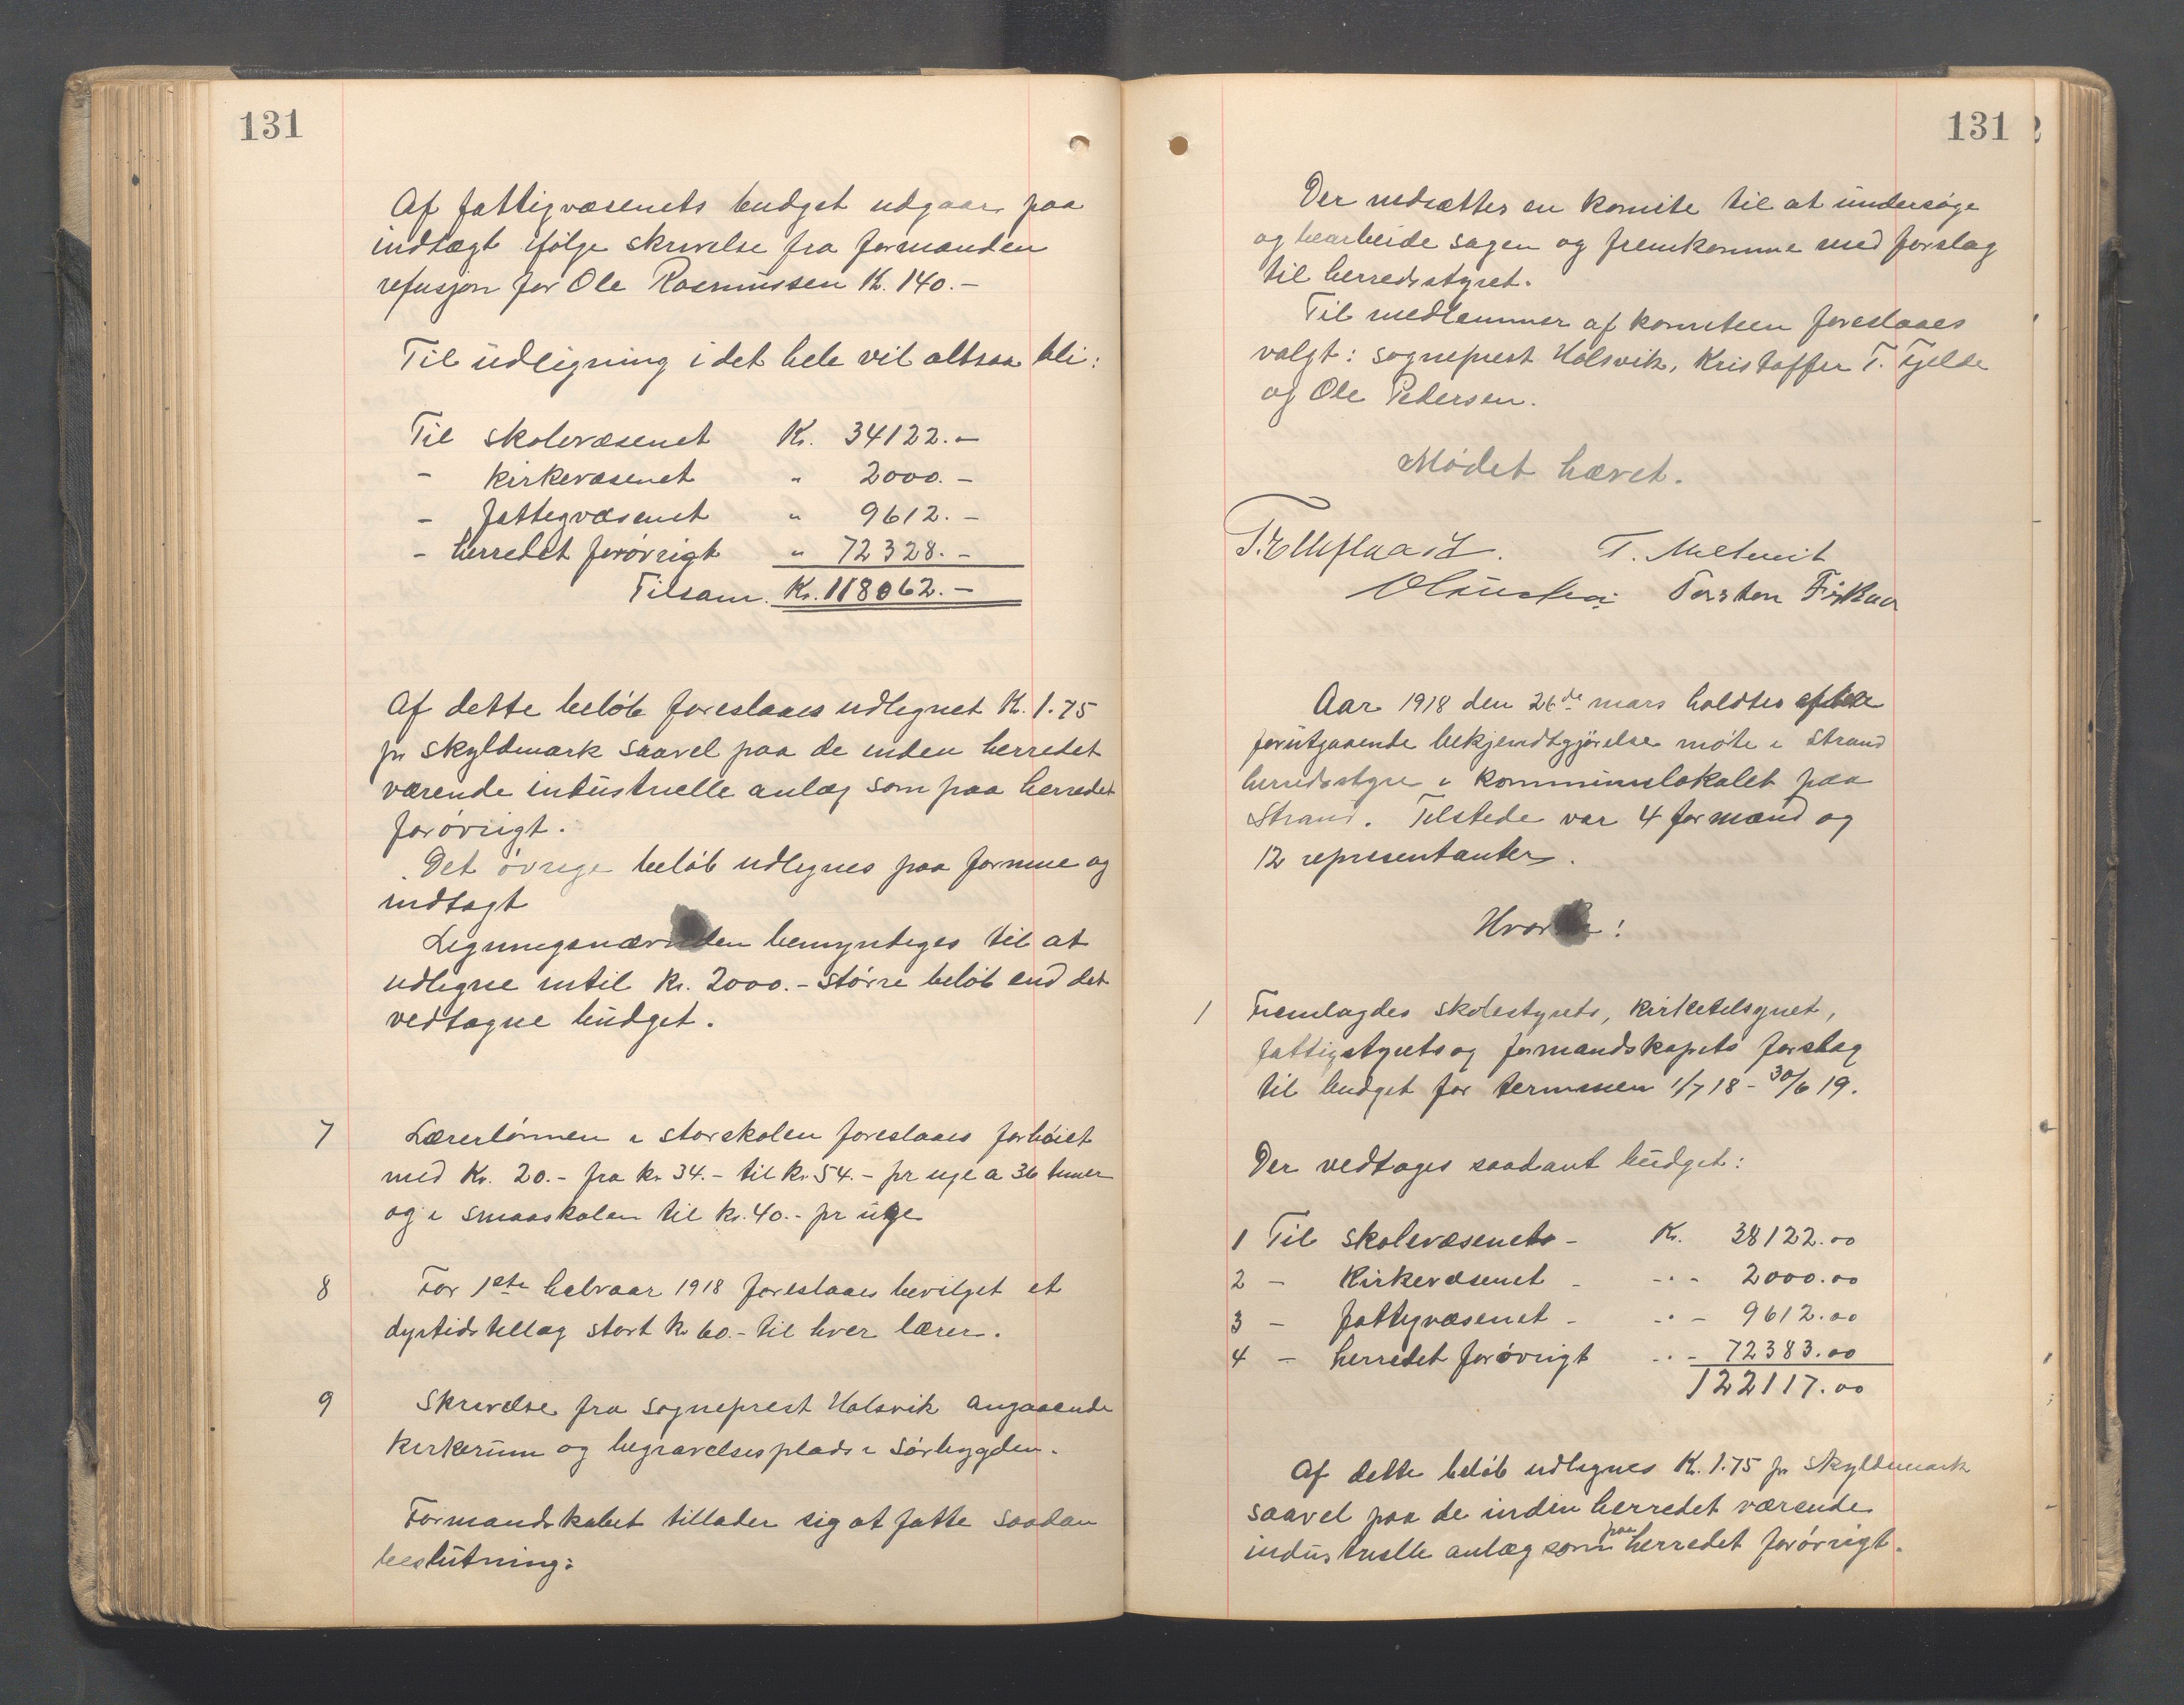 131
Af fattigvæsenets budget udgaar paa
indtægt ifølge skrivelse fra formanden
refusjon for Ole Rasmussen K. 140.-
Til udligning i det hele vil altsaa bli:
Til skolevæsenet Kr. 34122.-
- kirkevæsenet " 2000.-
- fattigvæsenet " 9612.-
- herredet forøvrigt " 72328.-
Tilsam. Kr. 118062.-
Af dette beløb foreslaaes udlignet K. 1.75
pr skyldmark saavel paa de inden herredet
værende industrielle anlæg som paa herredet
forøvrigt.
Det øvrige beløb udlignes paa formue og
indtægt
Ligningsnævnden bemyndiges til at
udligne intil kr. 2000.- større beløb end det
vedtagne budget.
7 Lærerlønnen i storskolen foreslaaes forhøiet
med Kr. 20.- fra kr 34.- til kr. 54.- pr uge a 36 timer
og i smaaskolen til kr. 40.- pr uge
8 For 1ste halvaar 1918 foreslaaes bevilget et
dyrtidstillæg stort kr 60.- til hver lærer.
9 Skrivelse fra sogneprest Holsvik angaaende
kirkerum og begravelsesplads i Sørbygden.
Formandskabet tillader sig at fatte saadan
beslutning:
131
Der nedsættes en komite til at undersøge
og bearbeide sagen og fremkomme med forslag
til herredsstyret.
Til medlemmer af komiteen foreslaaes
valgt: sogneprest Holsvik, Kristoffer T. Fjelde
og Ole Pedersen.
Mødet hævet.
T. Torsten Fiskaa
Aar 1918 den 26de mars holdtes efter
forutgaaende bekjendtgjørelse møte i Strand
herredsstyre i kommunelokalet paa
Strand. Tilstede var 4 formænd og
12 representanter.
1 Fremlagdes skolestyrets, kirketilsynet,
fattigstyrets og formandskapets forslag
til budget for terminen 1/7 18 - 30/6 19.
Der vedtages saadant budget:
1 Til skolevæsenets - Kr. 38122.00
2 - Kirkevæsenet - - " - 2000.00
3 - fattigvæsenet - - " - 9612.00
4 - herredet forøvrigt - " - 72383.00
122117.00
Af dette beløb udlignes K. 1.75 pr skyldmark
saavel paa de inden herredet værende
industrielle anlæg som paa herredet forøvrigt.